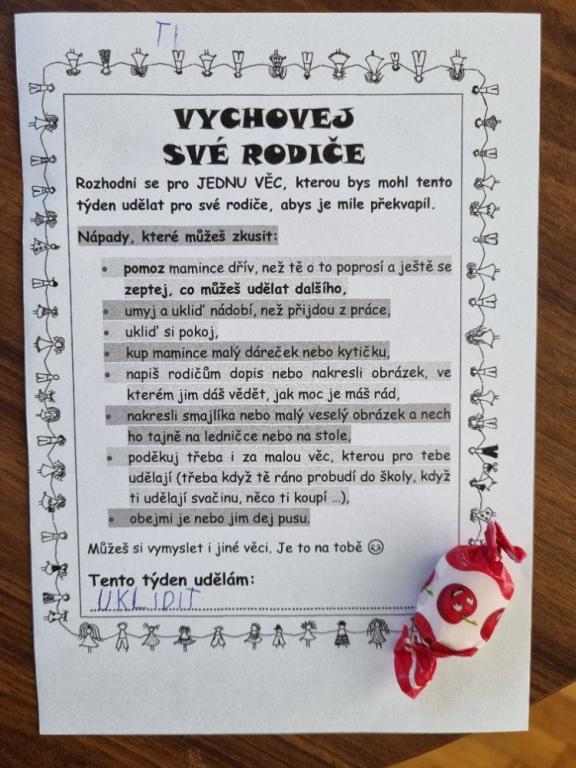 TI
VYCHOVEJ
SVÉ RODIČE
Rozhodni se pro JEDNU VĚC, kterou bys mohl tento
týden udělat pro své rodiče, abys je mile překvapil.
Nápady, které můžeš zkusit:
• pomoz mamince dřív, než tě o to poprosí a ještě se
zeptej, co můžeš udělat dalšího,
• umyj a ukliď nádobí, než přijdou z práce,
• ukliď si pokoj,
• kup mamince malý dáreček nebo kytičku,
• napiš rodičům dopis nebo nakresli obrázek, ve
kterém jim dáš vědět, jak moc je máš rád,
• nakresli smajlíka nebo malý veselý obrázek a nech
ho tajně na ledničce nebo na stole,
• poděkuj třeba i za malou věc, kterou pro tebe
udělají (třeba když tě ráno probudí do školy, když
ti udělají svačinu, něco ti koupí …),
• obejmi je nebo jim dej pusu.
Můžeš si vymyslet i jiné věci. Je to na tobě ☺
Tento týden udělám:
UKLIDIT